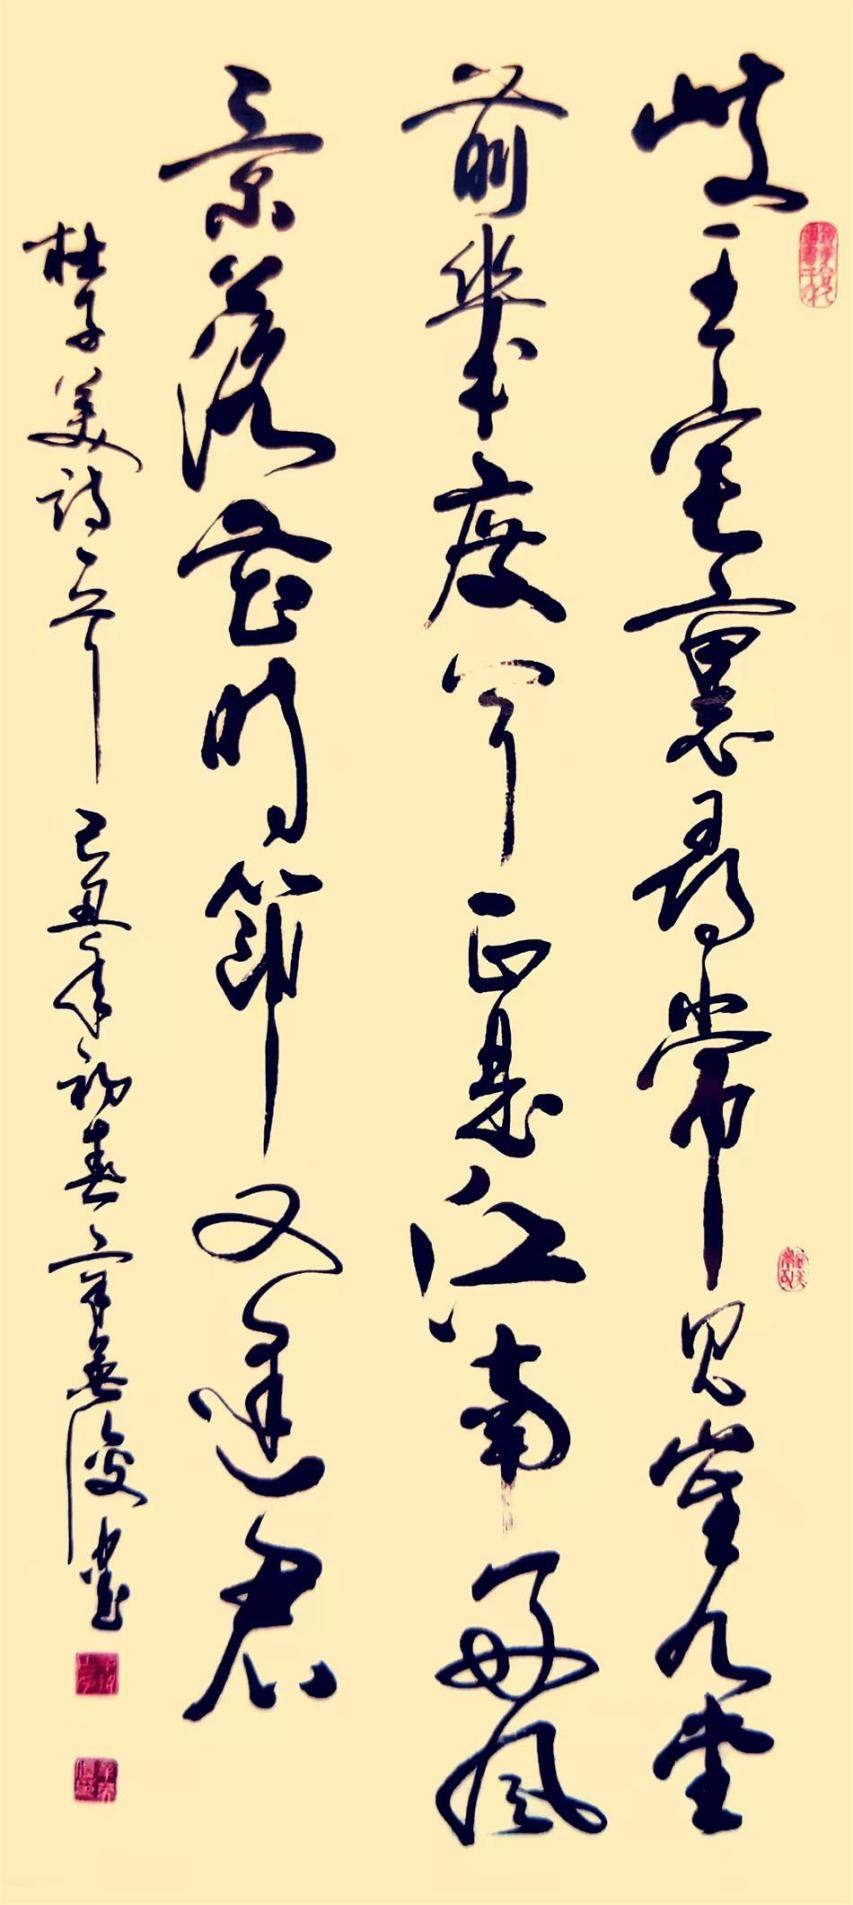 岐王宅裏尋常見崔九堂
前幾度聞正是江南好風
景落花時節又逢君
杜子美詩一首己丑年初春書